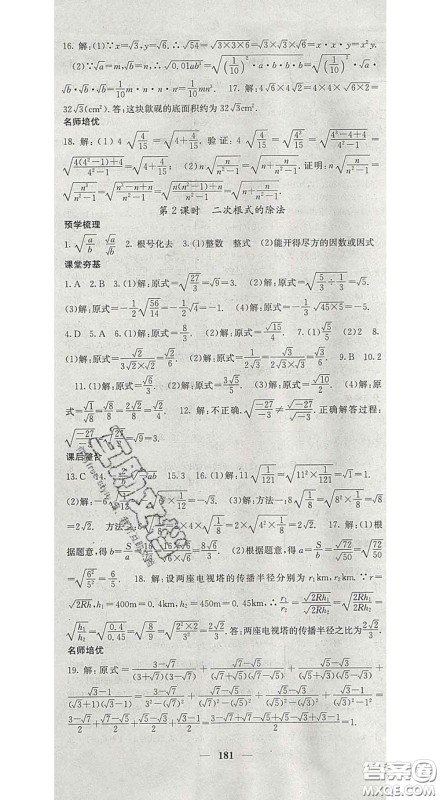 16. 解:(1)∵x=√3,y=√6.∴√54=√(3×3×6)=√3×√3×√6=x·x·y=x²y.
(2)∵√a=m,√b=n,∴√(0.01ab³)=√((1/10)²·a·b·b·b)=√((1/10)²)·√a·
√b·√b·√b=1/10 m·n·n·n=1/10 mn³. 17. 解:4√6×4√2=4×4×√(6×2)=
32√3(cm²).答:这块
名师培优
18. 解:(1)4√(4/15)=√(4+4/15) 验证:4√(4/15)=√(4³/15)=√((4³-4+4)/(4²-1))=
√((4(4²-1)+4)/(4²-1))=√(4+4/15). (2)n√(n/(n²-1))=√(n+n/(n²-1)). 证明:n√(n/(n²-1))=
√(n³/(n²-1))=√((n³-n+n)/(n²-1))=√((n(n²-1)+n)/(n²-1))=√(n+n/(n²-1)).
第2课时 二次根式的除法
预学梳理
1. √(a/b) √a/√b 2. 根号化去 3.(1)整数 整式 (2)能开得尽方的因数或因式
课堂夯基
1. A 2. B 3.(1)解:原式=√(27/3)=√9=3. (2)解:原式=√(5/3÷1/3)=√5.
(3)解:原式=-1/2√(56/14)=-1/2√4=-1. (4)解:原式=-1/3√(45×5)=-5.
4. D 5. A 6.(1)解:原式=√2/3. (2)解:原式=√15/4. 7.(1)√5 (2)2 8.
(1)解:原式=√2/(3√2×√2)=√2/6. (2)解:原式=1/(2√3)=√3/(2√3×√3)=√3/6. 9. B 10. 2
11.(1)解:原式=√6/3. (2)解:原式=3√5/5. (3)解:原式=√10/2. (4)解:原
式=√(1/8)=√8/8=2√2/8=√2/4. 12. 解:不正确.√(-27/-3)≠√-27/√-3.正确解答过程:
√(-27/-3)=√(27/3)=√9=3.
课后
13. C 15. 3 16.(1)解:11√(1/121)=√(11²×1/121)=√1=1. (2)解:
√(1/12)=-√3. (3)解:方法一:8√(1/8)=√(8²×1/8)=√8
=2√2. 方法二:8√(1/8)=2×4√(1/8)=2√(4²×1/8)=2√2. 17. 解:(1)根
据题意,得b=S/a=16/√6=16√6/6=8√6/3. (2)根据题意,得a=S/b=√72/√50=√(72/50)
=√(6²/5²)=6/5. 18. 解:设两座电视塔的传播半径分别为r₁km,r₂km,∵r=
√(2Rh),h₁=400m=0.4km,h₂=450m=0.45km.∴r₁/r₂=√(2Rh₁)/√(2Rh₂)=√(2Rh₁/2Rh₂)=
√(h₁/h₂)=√(0.4/0.45)=√(8/9)=√(2²×2/3²)=2√2/3.答:两座电视塔的传播半径之比为2√2/3.
名师培优
19. 解:原式=(3-√7)/((3+√7)(3-√7))+(√7-√5)/((√7+√5)(√7-√5))+(√5-√3)/((√5+√3)(√5-√3))+
(√3-1)/((√3+1)(√3-1))=(3-√7)/(3²-(√7)²)+(√7-√5)/((√7)²-(√5)²)+(√5-√3)/((√5)²-(√3)²)+(√3-1)/((√3)²-1²)=
(3-√7)/2+(√7-√5)/2+(√5-√3)/2+(√3-1)/2=(3-√7+√7-√5+√5-√3+√3-1)/2=1.
181
答案圈
MXQE.COM